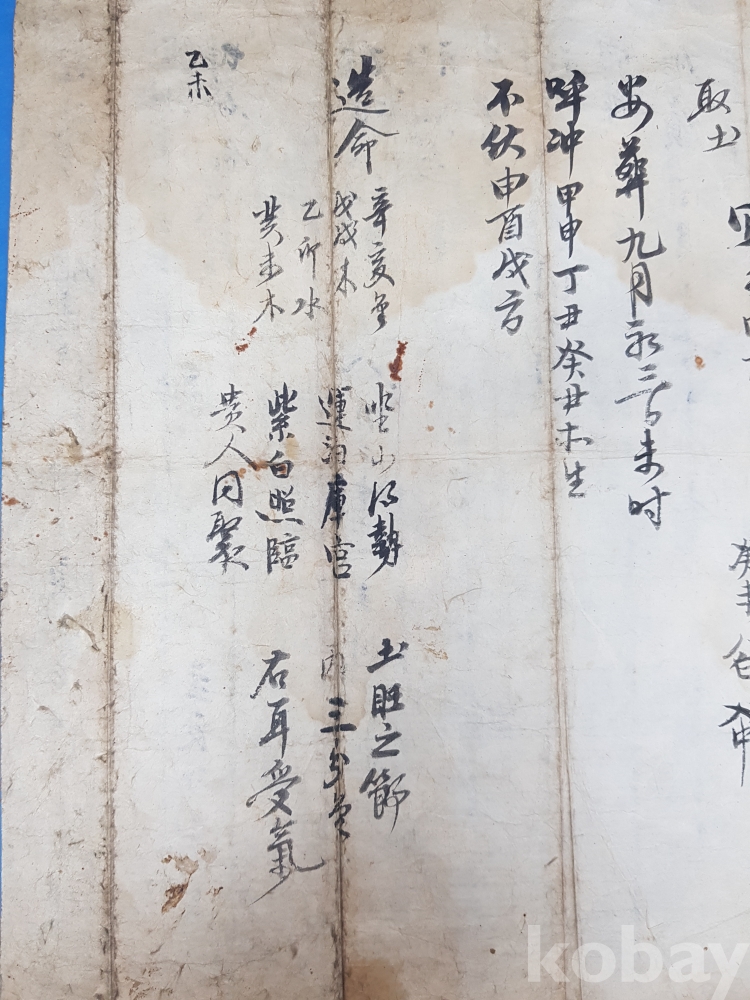 取土
安葬九月初二日未时
呼冲甲申丁丑癸丑未生
不伏申酉戌方
造命
辛亥金
戊戌木
乙卯水
癸未木
坐山得勢
運泊庫宮
紫白照臨
貴人同聚
土旺之節
三分金
右耳受氣
乙未
kobay